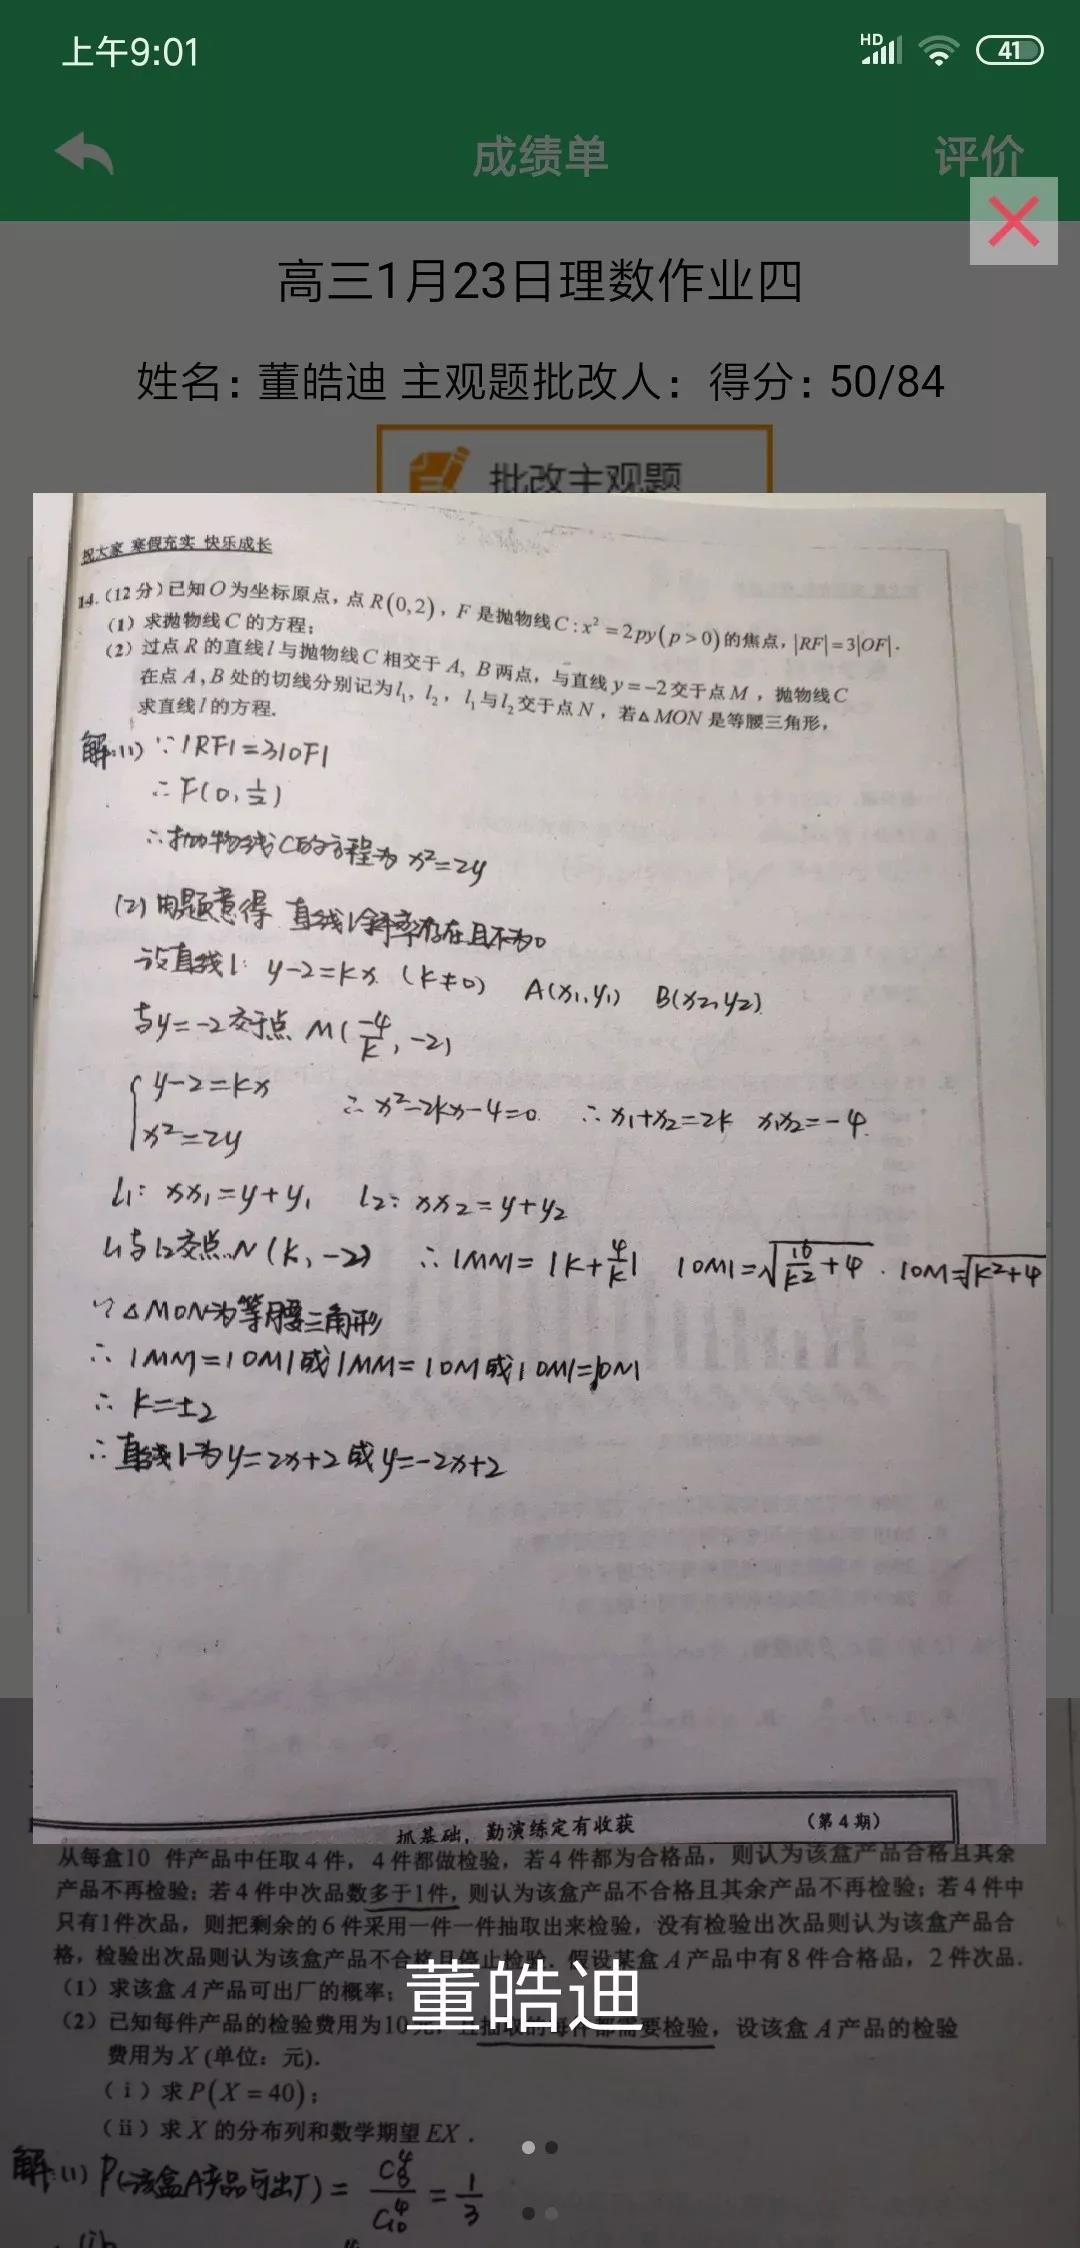 上午9:01
HD
41
成绩单
评价
高三1月23日理数作业四
姓名：董皓迪 主观题批改人：得分：50/84
批改主观题
祝大家 寒假充实 快乐成长
14.（12分）已知O为坐标原点，点R(0,2)，F是抛物线C:x²=2py(p>0)的焦点，|RF|=3|OF|.
（1）求抛物线C的方程；
（2）过点R的直线l与抛物线C相交于A, B两点，与直线y=-2交于点M，抛物线C
在点A,B处的切线分别记为l₁, l₂，l₁与l₂交于点N，若△MON是等腰三角形，
求直线l的方程.
解:(1) ∵|RF|=3|OF|
∴F(0,1/2)
∴抛物线C的方程为 x²=2y
(2) 由题意得 直线l斜率存在且不为0
设直线l: y-2=kx (k≠0) A(x₁,y₁) B(x₂,y₂)
与y=-2交于点 M(-4/k, -2)
{ y-2=kx
x²=2y
∴x²-2kx-4=0 ∴x₁+x₂=2k x₁x₂=-4.
l₁: xx₁=y+y₁ l₂: xx₂=y+y₂
l₁与l₂交点N(k,-2) ∴|MN|=|k+4/k| |OM|=√(16/k²+4). |ON|=√(k²+4)
∵△MON为等腰三角形
∴|MN|=|OM|或|MN|=|ON|或|OM|=|ON|
∴k=±2
∴直线l为y=2x+2或y=-2x+2
抓基础，勤演练定有收获
（第4期）
从每盒10 件产品中任取4件，4件都做检验，若4件都为合格品，则认为该盒产品合格且其余
产品不再检验；若4件中次品数多于1件，则认为该盒产品不合格且其余产品不再检验；若4件中
只有1件次品，则把剩余的6件采用一件一件抽取出来检验，没有检验出次品则认为该盒产品合
格，检验出次品则认为该盒产品不合格且停止检验．假设某盒A产品中有8件合格品，2件次品．
（1）求该盒A产品可出厂的概率；
董皓迪
（2）已知每件产品的检验费用为10元，且抽取的每件都需要检验，设该盒A产品的检验
费用为X (单位：元).
（ⅰ）求P(X=40)；
（ⅱ）求X的分布列和数学期望EX．
解:(1) P(该盒A产品可出厂)= C₈⁴/C₁₀⁴ = 1/3